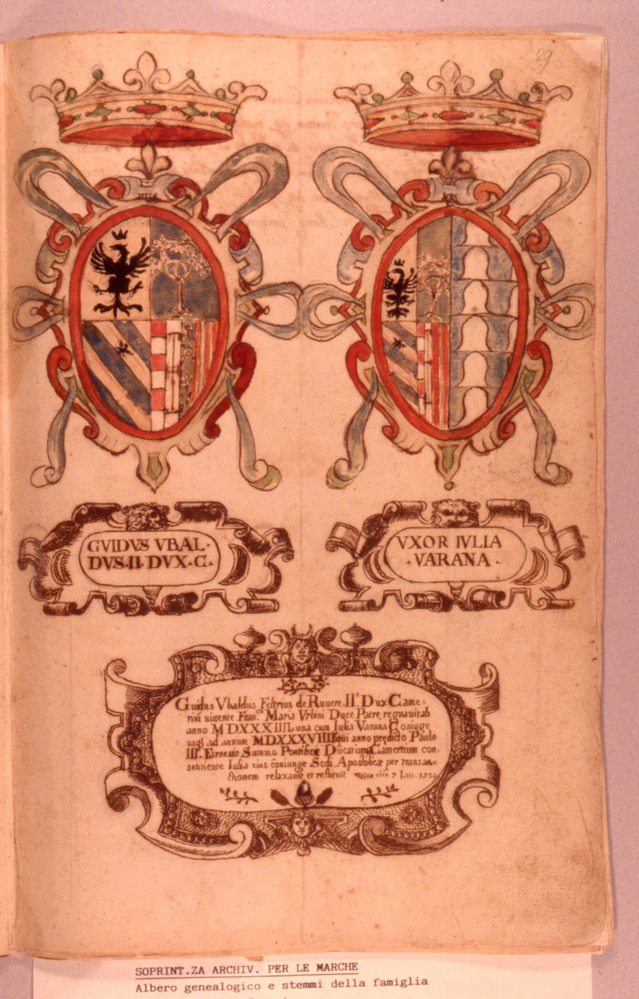 29
GVIDVS VBAL-
DVS·II·DVX·C·
VXOR IVLIA
·VARANA·
Guidus Vbaldus Feltrius de Ruuere II.s Dux Came-
rini uiuente Fran.co Maria Vrbini Duce Patre regnauit ab
anno MDXXXIIII una cum Iulia Varana Coniuge
usq3 ad annum MDXXXVIIII qui anno predicto Paulo
III.o Farnesio Summo Pontifice Ducatum Camertium con-
sentiente Iulia eius coniunge Sedi Apostolicæ per transan-
ctionem relaxauit et restituit
SOPRINT.ZA ARCHIV. PER LE MARCHE
Albero genealogico e stemmi della famiglia